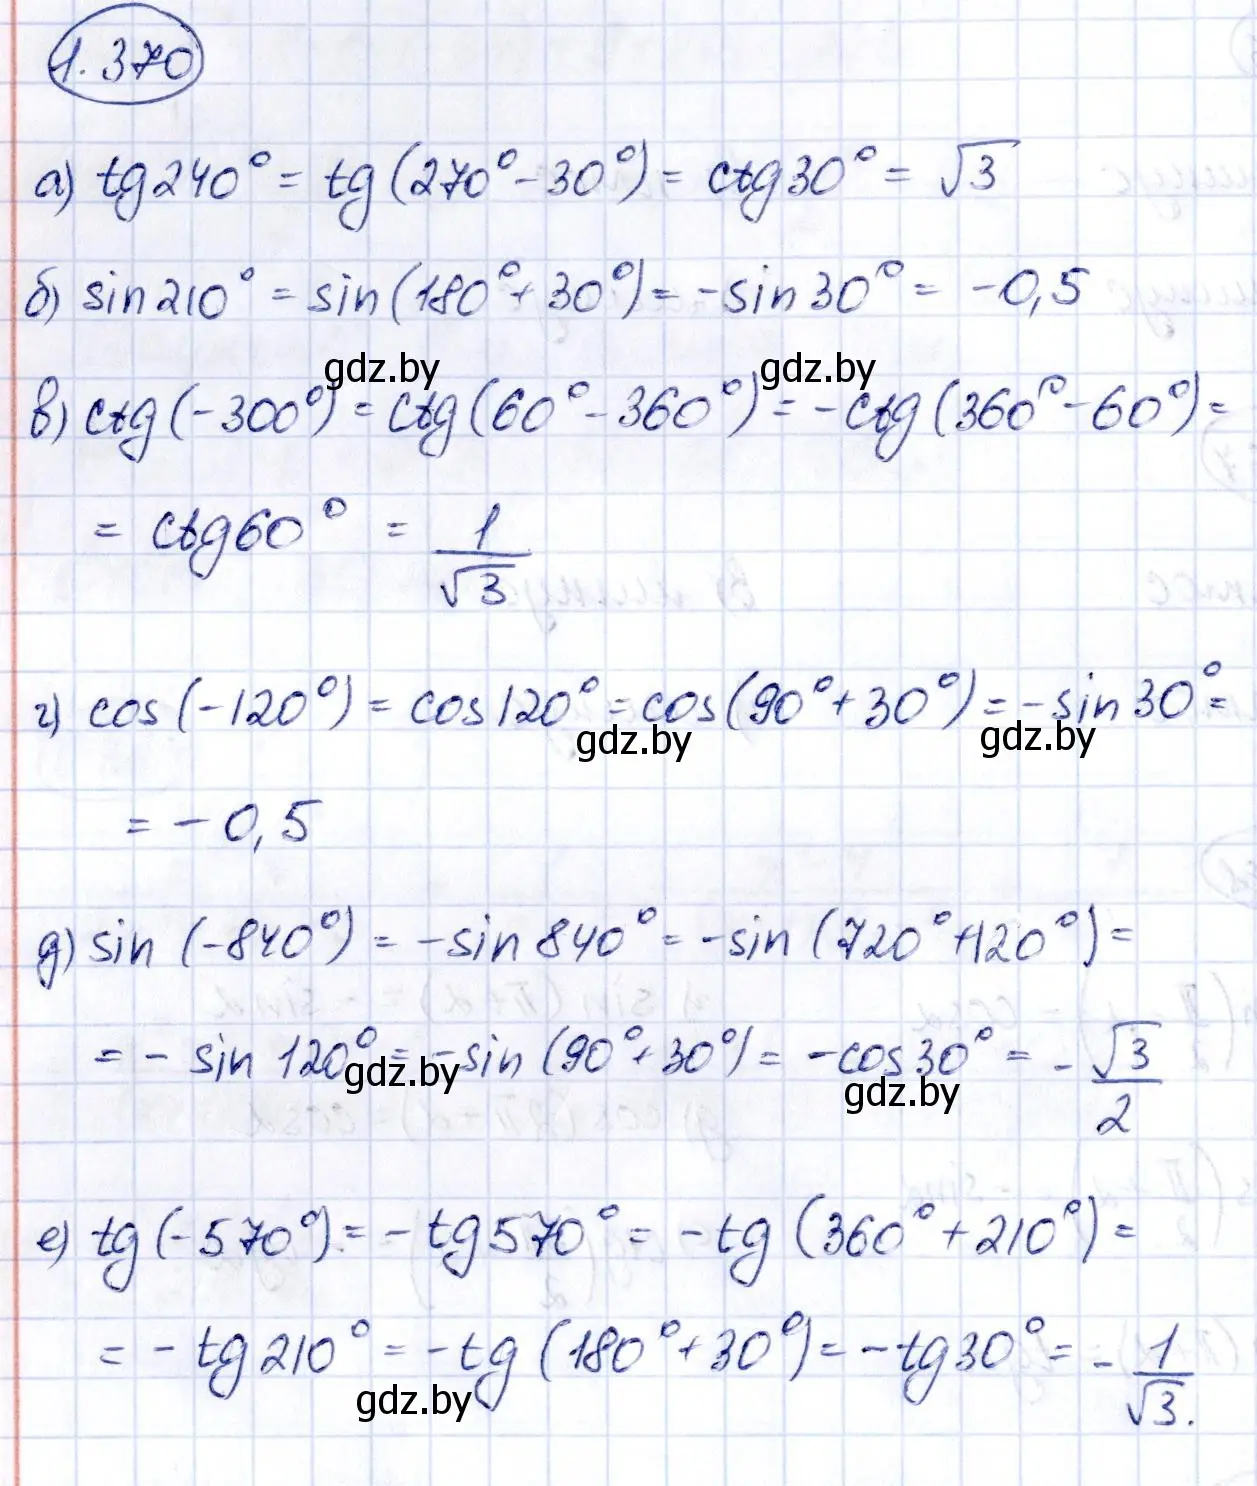 1.370
а) tg240° = tg(270° - 30°) = ctg30° = √3
б) sin210° = sin(180° + 30°) = -sin30° = -0,5
gdz.by gdz.by
в) ctg(-300°) = ctg(60° - 360°) = -ctg(360° - 60°) =
= ctg60° = 1/√3
г) cos(-120°) = cos120° = cos(90° + 30°) = -sin30° =
gdz.by gdz.by
= -0,5
д) sin(-840°) = -sin840° = -sin(720° + 120°) =
= -sin120° = -sin(90° + 30°) = -cos30° = -√3/2
gdz.by gdz.by
е) tg(-570°) = -tg570° = -tg(360° + 210°) =
= -tg210° = -tg(180° + 30°) = -tg30° = -1/√3.
gdz.by